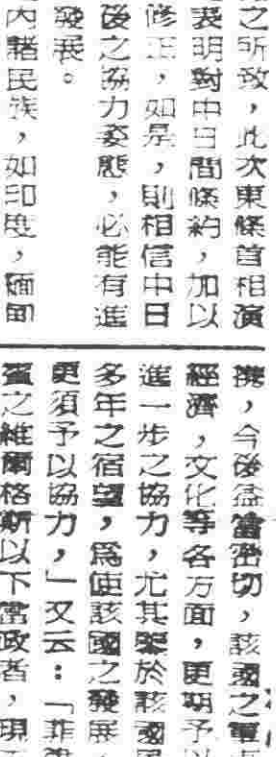 之所致，此次東條首相演
表明對中日間條約，加以
修正，如是，則相信中日
後之協力姿態，必能有進
發展。
內諸民族，如印度，緬甸
携，今後益當密切，該國之軍
經濟，文化等各方面，更期予以
進一步之協力，尤其鑒於該國
多年之宿望，爲使該國之發展
更須予以協力，」又云：「菲
賓之維爾格斯以下當政者，現